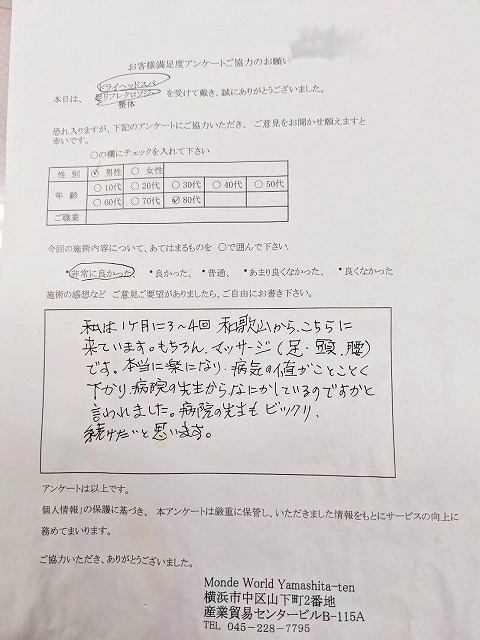 お客様満足度アンケートご協力のお願い
ドライヘッドスパ
本日は、 足リフレクロソジー を受けて戴き、誠にありがとうございました。
整体
恐れ入りますが、下記のアンケートにご協力いただき、ご意見をお聞かせ願えますと
幸いです。
〇の欄にチェックを入れて下さい
性 別 ○ 男性 ○ 女性
年 齢 ○ 10代 ○ 20代 ○ 30代 ○ 40代 ○ 50代
○ 60代 ○ 70代 ○ 80代
ご職業
今回の施術内容について、あてはまるものを 〇で囲んで下さい
・非常に良かった ・良かった、 ・普通、 ・あまり良くなかった、 ・良くなかった
施術の感想など ご意見ご要望がありましたら、ご自由にお書き下さい。
私は1ヶ月に3〜4回 和歌山から、こちらに
来ています。もちろん、マッサージ(足・頭、腰)
です。本当に楽になり、病気の値がことごとく
下がり、病院の先生からなにかしているのですかと
言われました。病院の先生もビックリ、
続けたいと思います。
アンケートは以上です。
個人情報」の保護に基づき、本アンケートは厳重に保管し、いただきました情報をもとにサービスの向上に
務めてまいります。
ご協力いただき、ありがとうございました。
Monde World Yamashita-ten
横浜市中区山下町2番地
産業貿易センタービルB-115A
TEL 045-228-7795